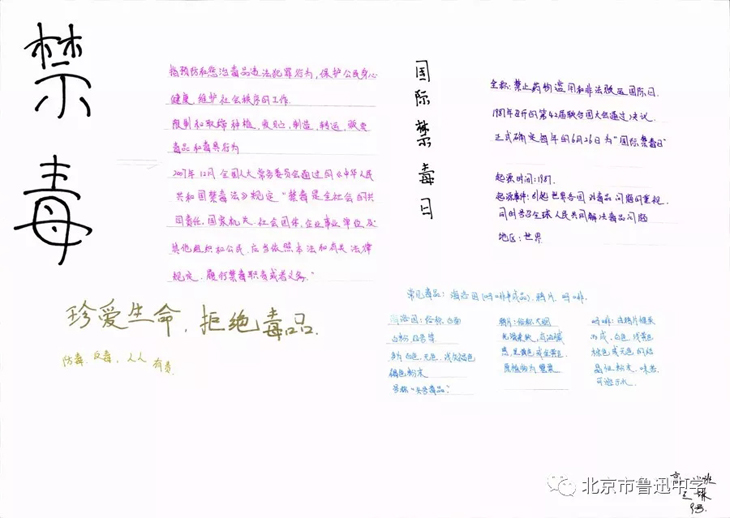 禁毒
指预防和惩治毒品违法犯罪行为，保护公民身心
健康，维护社会秩序的工作
限制和取缔种植，贩卖，制造，转运，吸食
毒品和毒害行为
2007年12月全国人大常务委员会通过的《中华人民
共和国禁毒法》规定"禁毒是全社会的共
同责任，国家机关、社会团体、企业事业单位及
其他组织和公民，应当依照本法和有关法律
规定，履行禁毒职责或者义务。"
珍爱生命，拒绝毒品.
防毒 反毒，人人有责.
国际禁毒日
全称：禁止药物滥用和非法贩运国际日.
1987年召开的第42届联合国大会通过决议.
正式确定每年的6月26日为"国际禁毒日"
起源时间：1987.
起源事件：引起世界各国对毒品问题的重视，
同时号召全球人民共同解决毒品问题
地区：世界
常见毒品：海洛因（吗啡半成品），鸦片，吗啡.
海洛因：俗称，白面
鸦片：俗称大烟
吗啡：
褐色粉末
号称"世界毒品？
北京市鲁迅中学